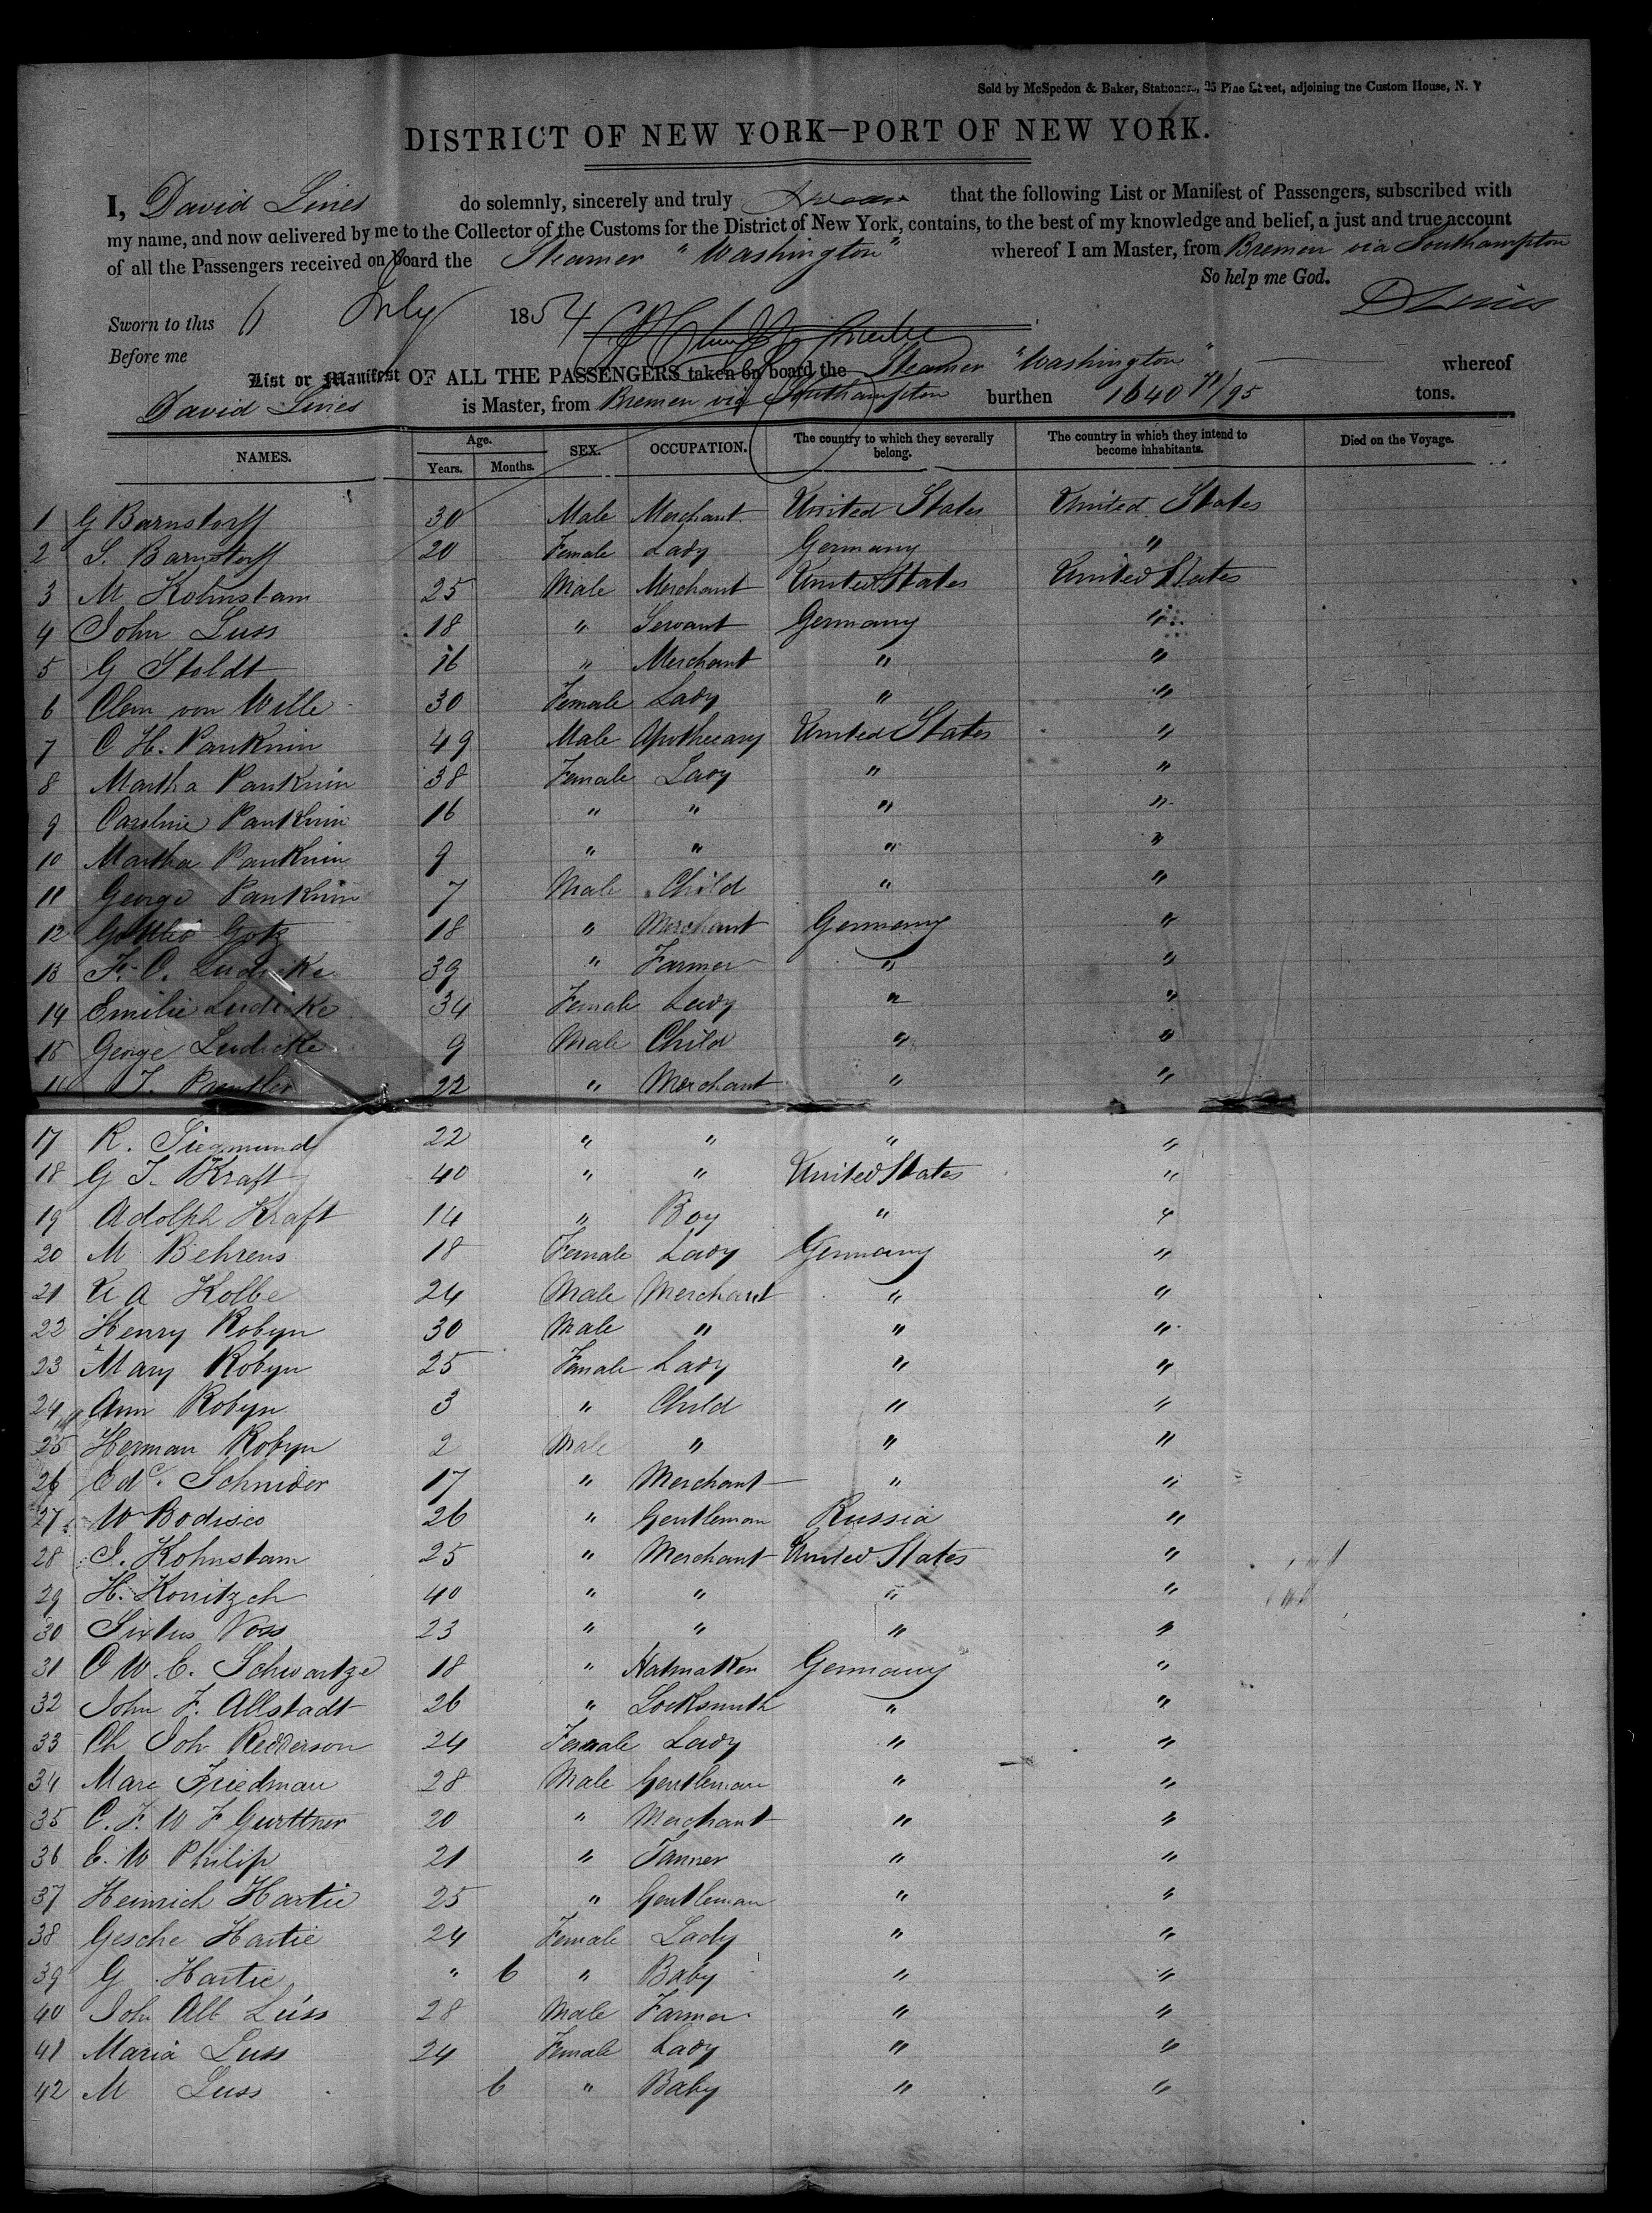 Sold by McSpedon & Baker, Stationers, 25 Pine Street, adjoining the Custom House, N. Y
DISTRICT OF NEW YORK—PORT OF NEW YORK.
I, David Lines do solemnly, sincerely and truly Swear that the following List or Manifest of Passengers, subscribed with
my name, and now delivered by me to the Collector of the Customs for the District of New York, contains, to the best of my knowledge and belief, a just and true account
of all the Passengers received on board the Steamer "Washington" whereof I am Master, from Bremen via Southampton
So help me God.
Sworn to this 6 July 1854 D Lines
Before me
List or Manifest OF ALL THE PASSENGERS taken on board the Steamer "Washington" whereof
David Lines is Master, from Bremen via Southampton burthen 1640 71/95 tons.
NAMES. Age. Years. Months. SEX. OCCUPATION. The country to which they severally belong. The country in which they intend to become inhabitants. Died on the Voyage.
1 G Barnstorff 30 Male Merchant United States United States
2 S. Barnstorff 20 Female Lady Germany "
3 M Kohnstam 25 Male Merchant United States United States
4 John Luss 18 " Servant Germany "
5 G Stoldt 16 " Merchant " "
6 Clem von Wille 30 Female Lady " "
7 C H. Panknin 49 Male Apothecary United States "
8 Martha Panknin 38 Female Lady " "
9 Caroline Panknin 16 " " " "
10 Martha Panknin 9 " " " "
11 George Panknin 7 Male Child " "
12 Gottlieb Gotz 18 " Merchant Germany "
13 F. C. Ludicke 39 " Farmer " "
14 Emilie Ludicke 34 Female Lady " "
15 George Ludicke 9 Male Child " "
16 22 " Merchant " "
17 R. Siegmund 22 " " " "
18 G T. Kraft 40 " " United States "
19 Adolph Kraft 14 " Boy " "
20 M Behrens 18 Female Lady Germany "
21 A Kolbe 24 Male Merchant " "
22 Henry Robyn 30 Male " " "
23 Mary Robyn 25 Female Lady " "
24 Ann Robyn 3 " Child " "
25 Herman Robyn 2 Male " " "
26 Edd. Schnider 17 " Merchant " "
27 W Bodisco 26 " Gentleman Russia "
28 S. Kohnstam 25 " Merchant United States "
29 H. Konitzch 40 " " " "
30 Sixtus Voss 23 " " " "
31 C W. C. Schwartze 18 " Hatmaker Germany "
32 John F. Allstadt 26 " Locksmith " "
33 Ch Joh Redderson 24 Female Lady " "
34 Marc Friedman 28 Male Gentleman " "
35 C. F. W F Gurttner 20 " Merchant " "
36 E. W Philip 21 " Tanner " "
37 Heinrich Hartie 25 " Gentleman " "
38 Gesche Hartie 24 Female Lady " "
39 G Hartie " 6 " Baby " "
40 Joh Alb Luss 28 Male Farmer " "
41 Maria Luss 24 Female Lady " "
42 M Luss 6 " Baby " "